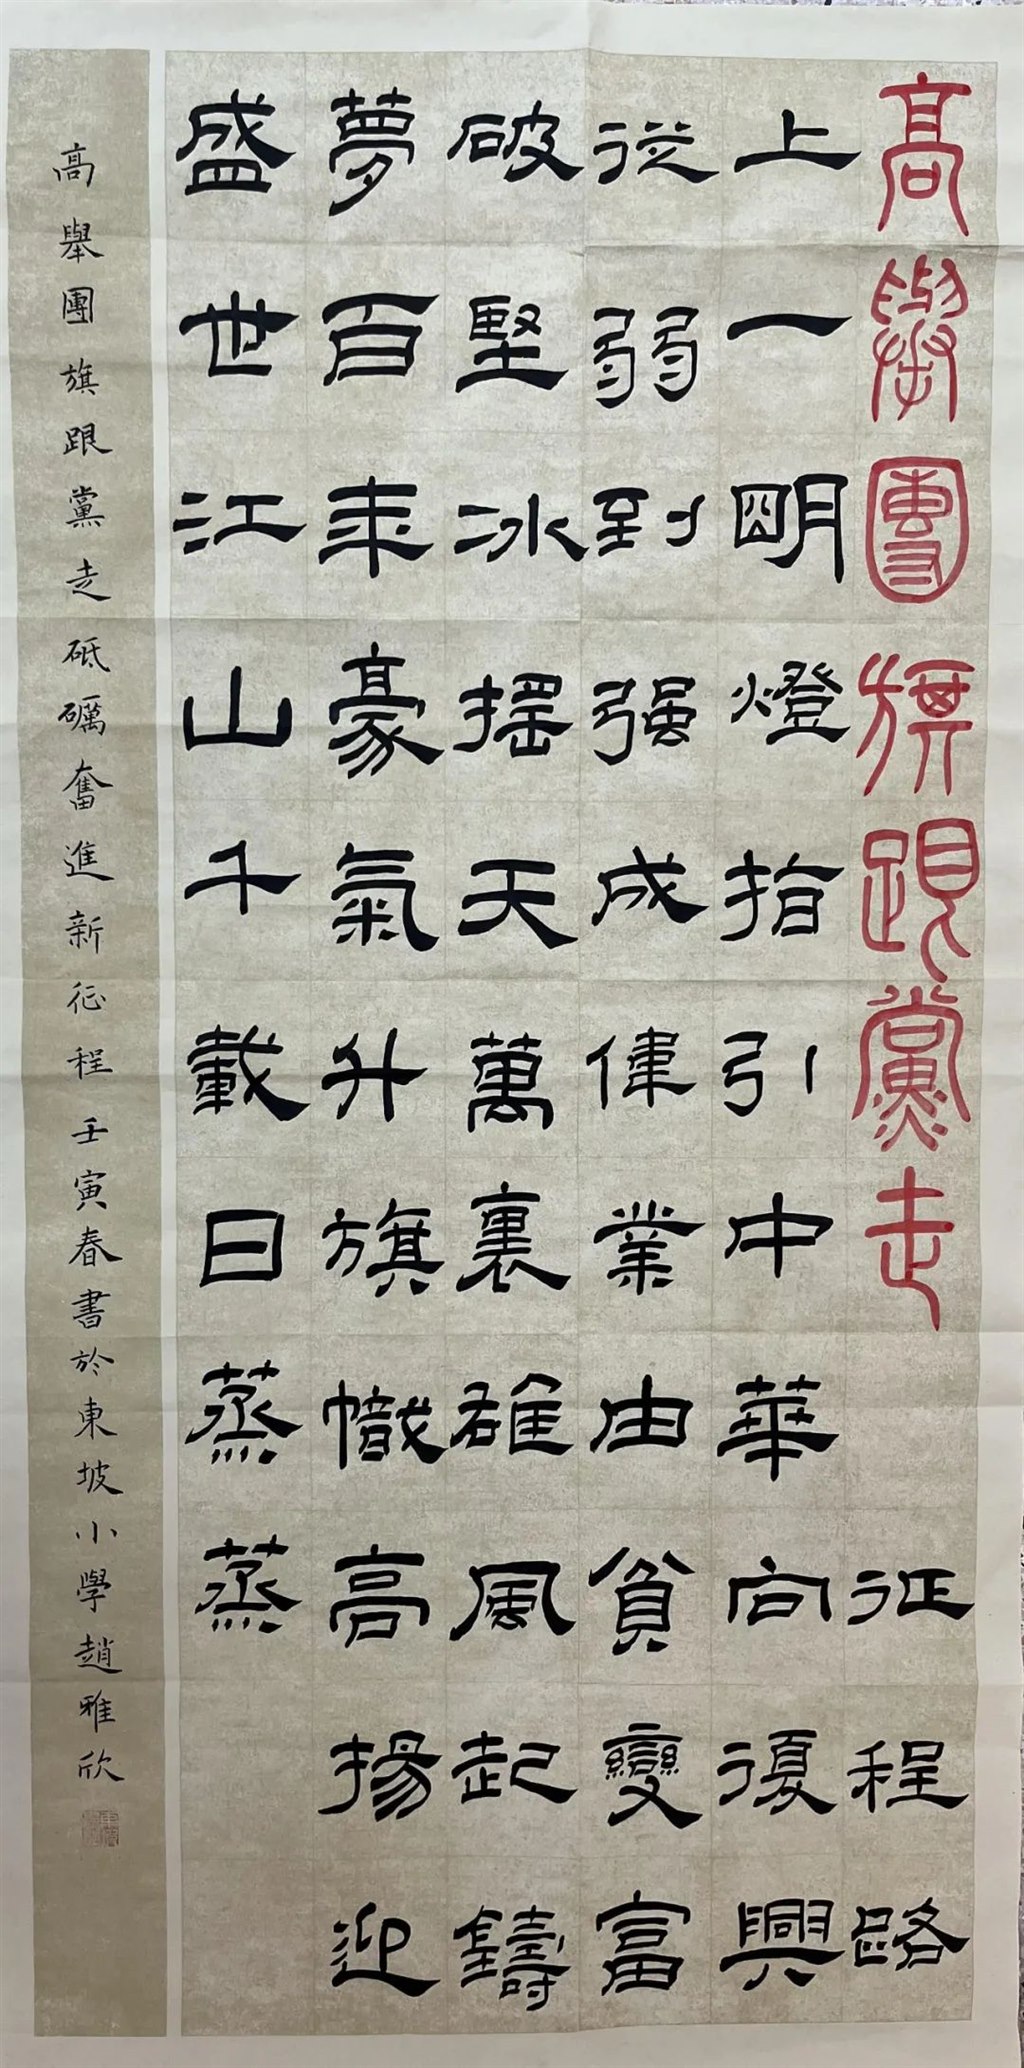 高舉團旗跟黨走
征程路
上一明燈指引中華向復興
從弱到强成偉業由貧變富
破堅冰摇天萬裏雄風起鑄
夢百年豪氣升旗幟高揚迎
盛世江山千載日蒸蒸
高舉團旗跟黨走砥礪奮進新征程壬寅春書於東坡小學趙雅欣